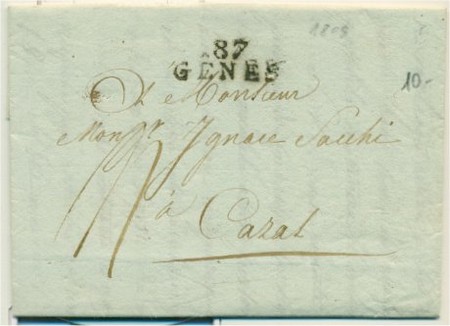 1808
87
GÊNES
10-
A Monsieur
Monsr. Ignace Sacchi
à
Cazal